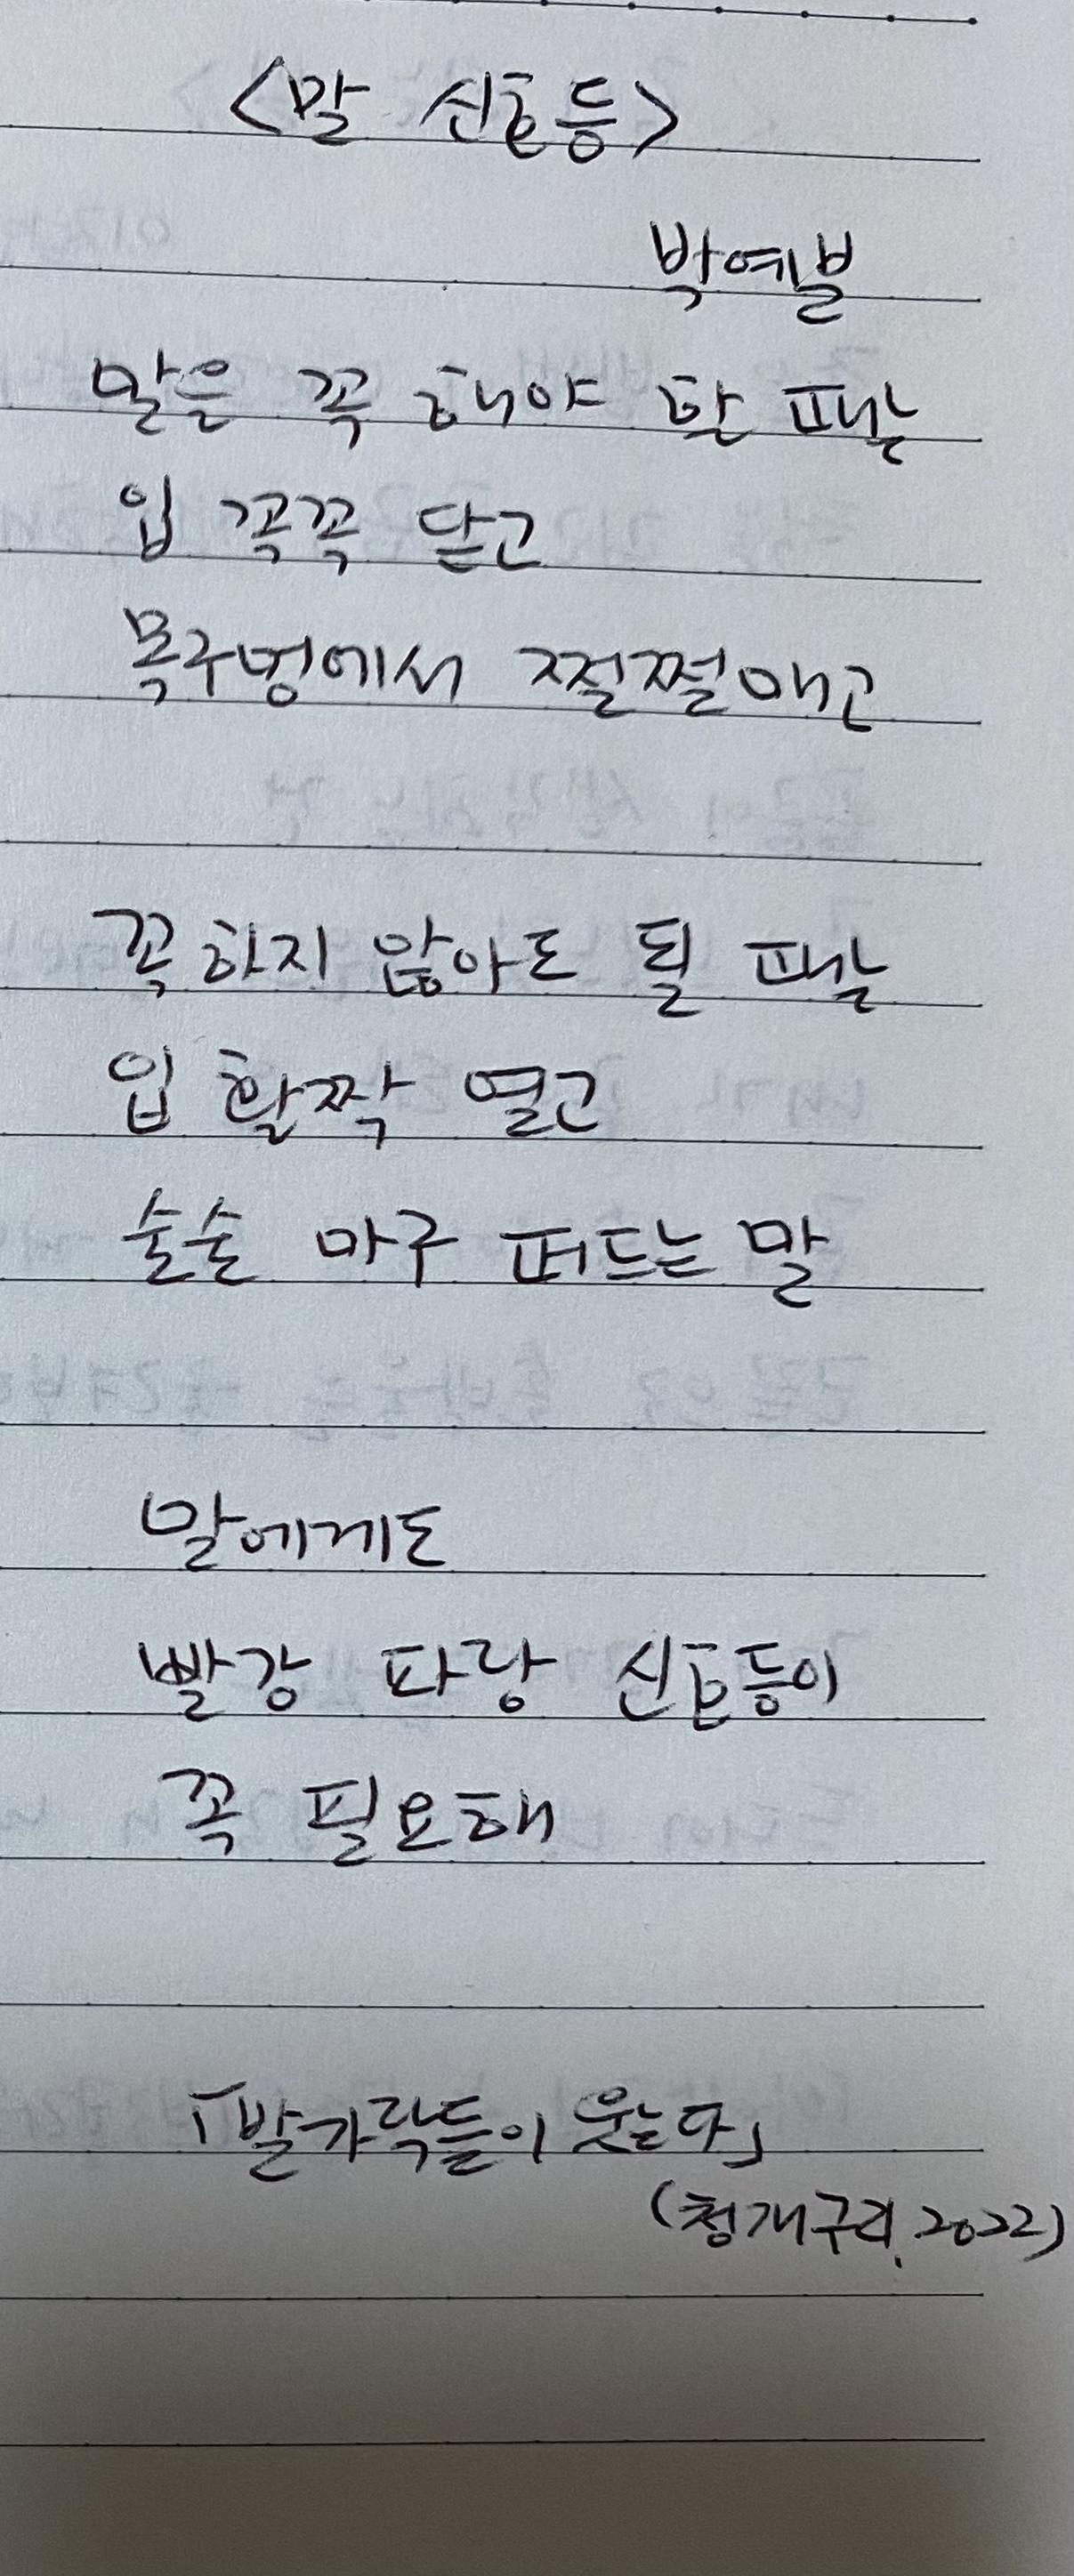 <말 신호등>
박예분
말을 꼭 해야 할 땐
입 꼭꼭 닫고
목구멍에서 쩔쩔매고
꼭 하지 않아도 될 땐
입 활짝 열고
술술 마구 퍼드는 말
말에게도
빨강 파랑 신호등이
꼭 필요해
「발가락들이 웃는다」
(청개구리, 2022)